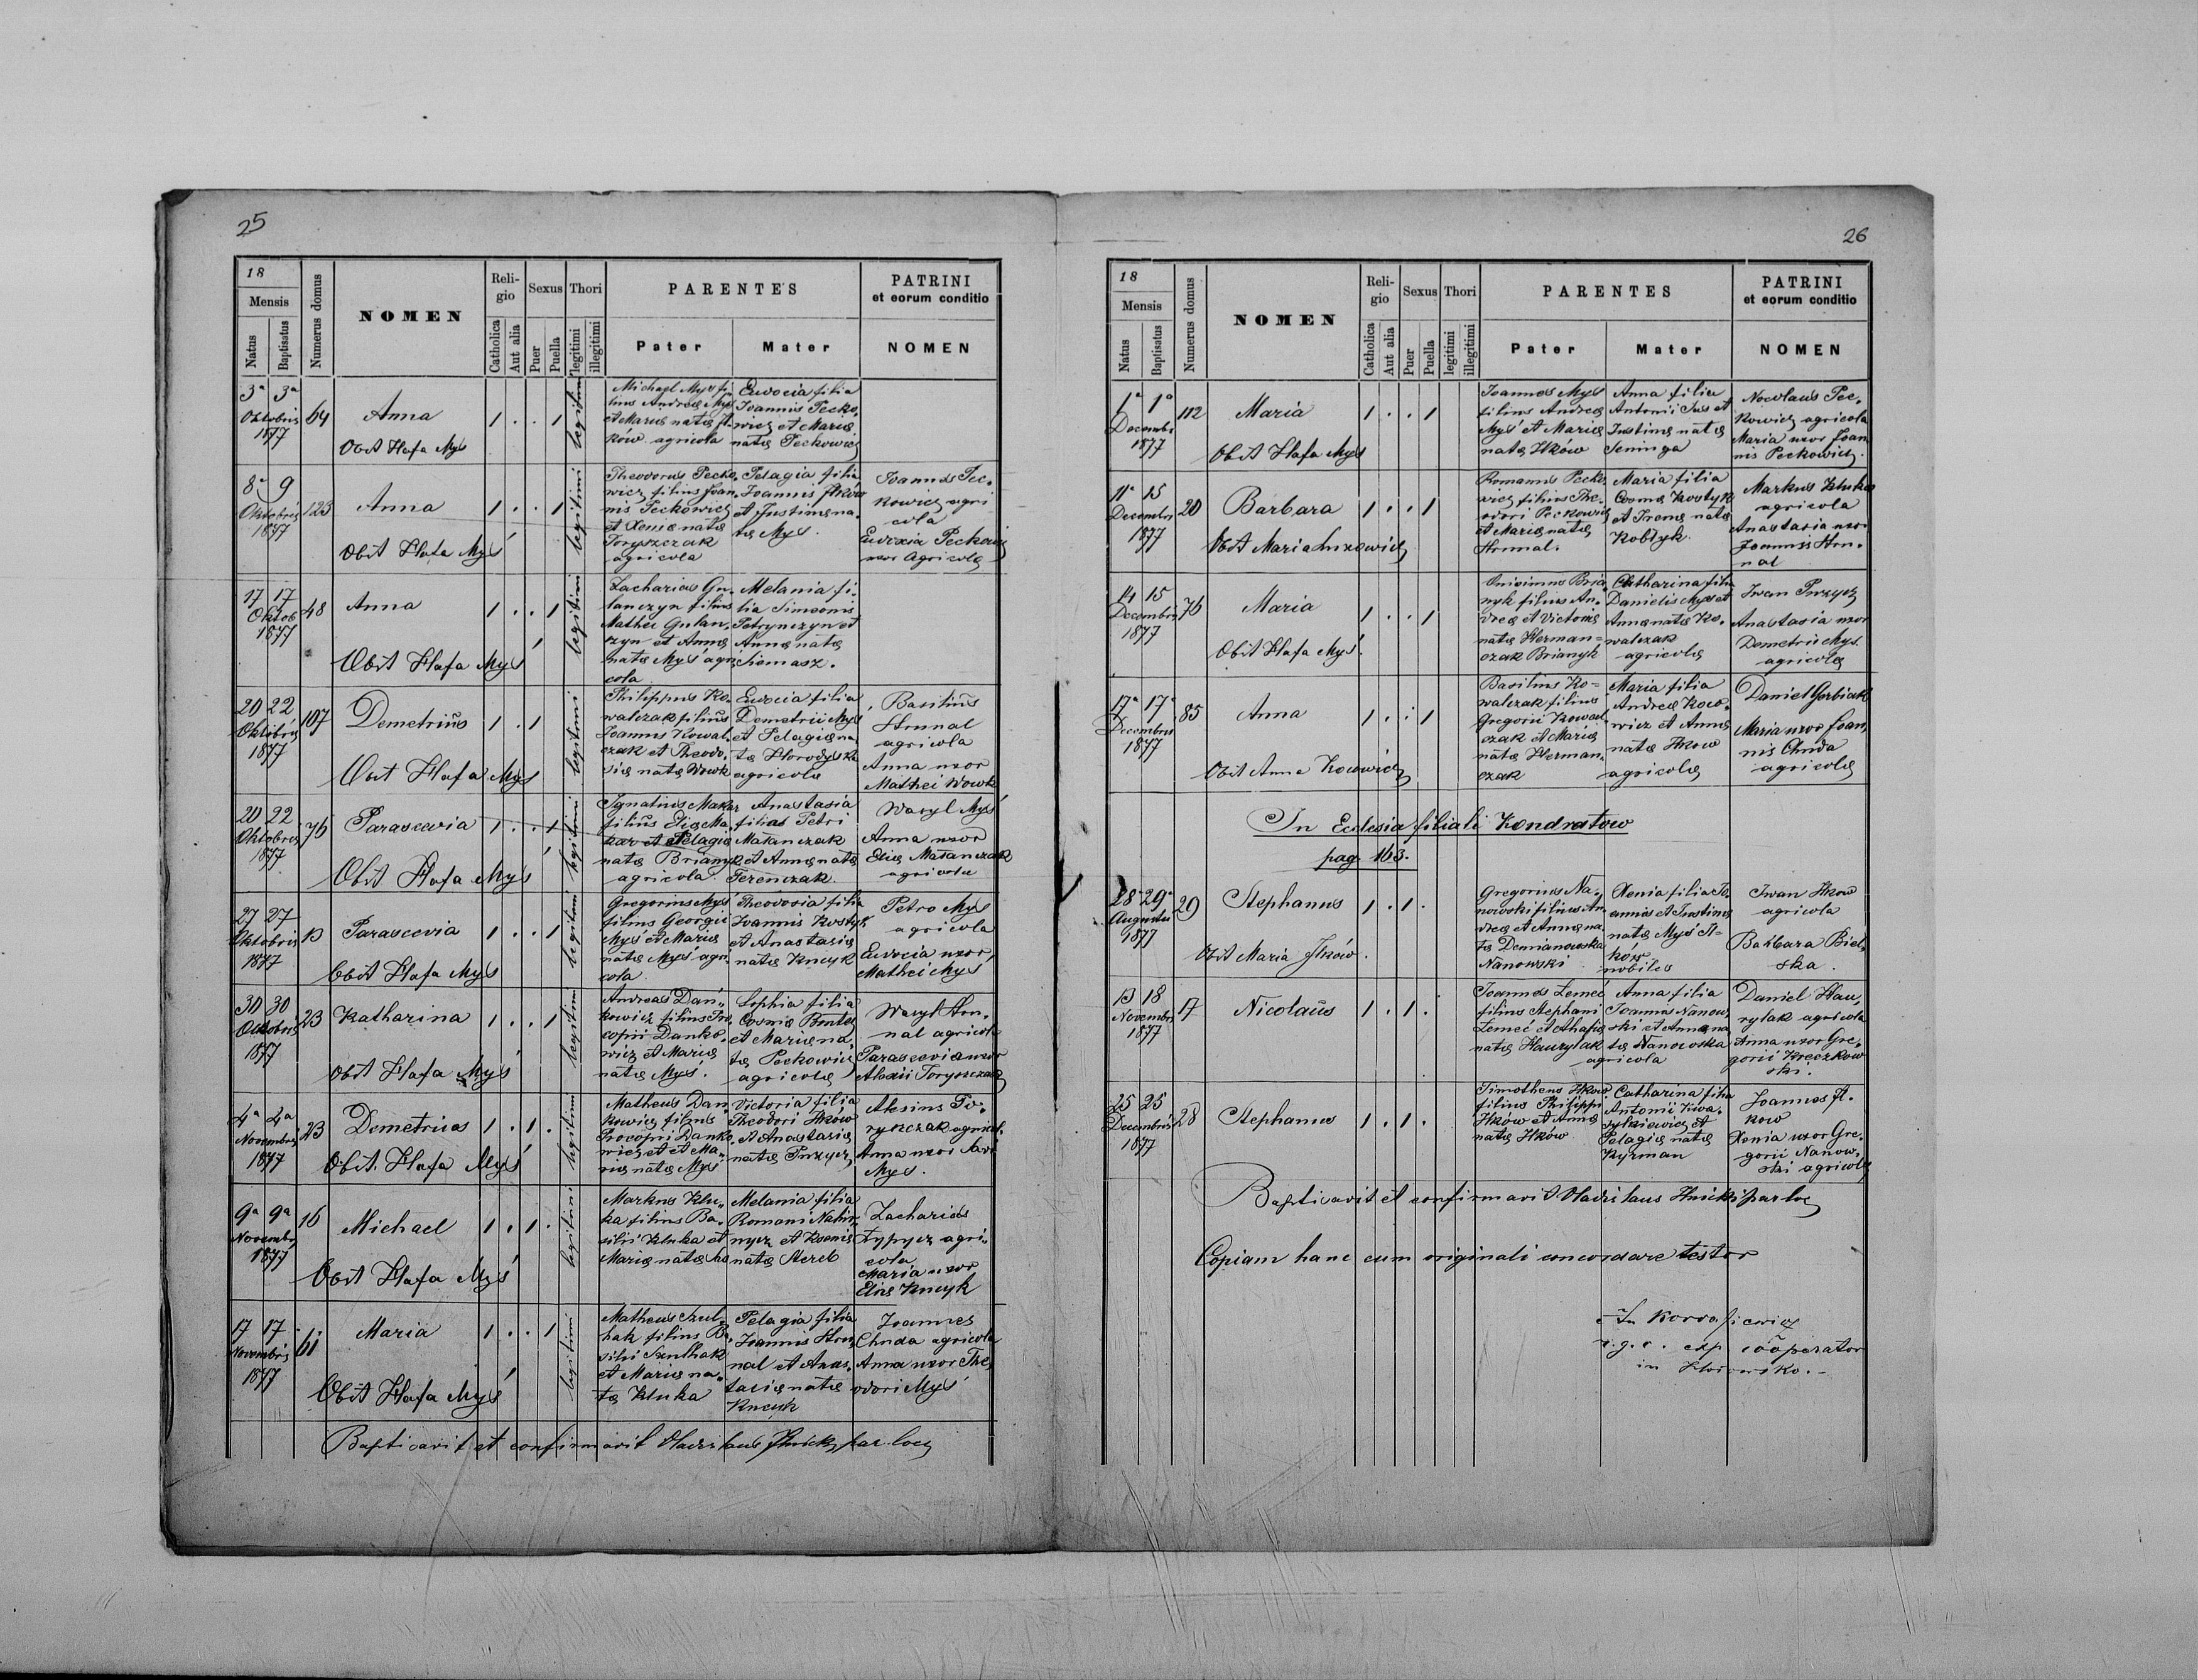 25
18
Mensis
Natus
Baptisatus
Numerus domus
NOMEN
Religio
Catholica
Aut alia
Sexus
Puer
Puella
Thori
legitimi
illegitimi
PARENTES
Pater
Mater
PATRINI
et eorum conditio
NOMEN
3a 3a
Oktobris
1877
64
Anna
Obst Hafa Myś
1 . . 1
legitimi
Michael Myś fi
lius Andreæ Myś
et Mariæ natæ It
ków agricola
Eudocia filia
Joannis Pecko
wicz et Mariæ
natæ Peckowicz
8a 9
Oktobris
1877
123
Anna
Obst Hafa Myś
1 . . 1
legitimi
Theodorus Pecko
wicz filius Joan
nis Peckowicz
et Xeniæ natæ
Toryszczak
agricola
Pelagia filia
Joannis Itków
et Justinæ na
tæ Myś.
Joannes Pec
kowicz agri
cola
Eudoxia Peckowicz
uxor agricolæ
17 17
Oktob
1877
48
Anna
Obst Hafa Myś
1 . . 1
legitimi
Zacharias Gu
lanczyn filius
Mathei Gulan
czyn et Annæ
natæ Myś agri
cola
Melania fi
lia Simeonis
Petrynczyn et
Annæ natæ
Siemasz.
20 22
Oktobris
1877
107
Demetrius
Obst Hafa Myś
1 . 1
legitimi
Philippus Ko
walczak filius
Joannis Kowal
czak et Theodo
siæ natæ Wowk
Eudocia filia
Demetrii Myś
et Pelagiæ na
tæ Horodyska
agricolæ
Basilius
Hrunal
agricola
Anna uxor
Mathei Wowk
20 22
Oktobris
1877
76
Parascevia
Obst Hafa Myś
1 . . 1
legitimi
Ignatius Makar
filius Eliæ Ma
kar et Pelagiæ
natæ Brianyk
agricola
Anastasia
filia Petri
Matanczak
et Annæ natæ
Ferenczak.
Wasyl Myś
Anna uxor
Eliæ Matanczak
agricola
27 27
Oktobris
1877
13
Parascevia
Obst Hafa Myś
1 . . 1
legitimi
Gregorius Myś
filius Georgii
Myś et Mariæ
natæ Myś agri
cola
Theodosia filia
Joannis Kostyk
et Anastasiæ
natæ Kncyk
Petro Myś
agricola
Eudocia uxor
Mathei Myś
30 30
Oktobris
1877
23
Katharina
Obst Hafa Myś
1 . . 1
legitimi
Andreas Dań
kowicz filius Pro
copii Danko
wicz et Mariæ
natæ Myś.
Sophia filia
Cosmæ
et Mariæ na
tæ Peckowicz
agricolæ
Wasyl Hru
nal agricola
Parascevia uxor
Alexii Toryszczak
4a 4a
Novembris
1877
23
Demetrius
Obst. Hafa Myś
1 . 1 .
legitimi
Matheus Dan
kowicz filius
Procopii Danko
wicz et Ma
riæ natæ Myś
Victoria filia
Theodori Itków
et Anastasiæ
natæ Puzycz
Alesius To
ryszczak agricol.
Anna uxor
Myś.
9a 9a
Novembr
1877
16
Michael
Obst Hafa Myś
1 . 1 .
legitimi
Markus Klu
ka filius Ba
silii Kluka et
Mariæ natæ
Melania filia
Romani
et Kseniæ
natæ
Zacharias
agri
cola
Maria uxor
Eliæ Kncyk
17 17
Novembris
1877
61
Maria
Obst Hafa Myś
1 . . 1
legitimi
Matheus Szul
hak filius Ba
silii Szulhak
et Mariæ na
tæ Kluka
Pelagia filia
Joannis Hru
nal et Anas
tasiæ natæ
Kncyk
Joannes
Chuda agricola
Anna uxor The
odori Myś
Baptisavit et confirmavit Vladislaus Ilnicki par. loci
26
18
Mensis
Natus
Baptisatus
Numerus domus
NOMEN
Religio
Catholica
Aut alia
Sexus
Puer
Puella
Thori
legitimi
illegitimi
PARENTES
Pater
Mater
PATRINI
et eorum conditio
NOMEN
1a 1a
Decembr
1877
112
Maria
Obst Hafa Myś
1 . . 1
Joannes Myś
filius Andreæ
Myś et Mariæ
natæ Itków
Anna filia
Antonii Sus et
Justinæ natæ
Seninga
Nicolaus Pec
kowicz agricola
Maria uxor Joan
nis Peckowicz.
11a 15
Decembris
1877
20
Barbara
Obst Maria Luzowicz
1 . . 1
Romanus Pecko
wicz filius The
odori Peckowicz
et Mariæ natæ
Hrunal.
Maria filia
Cosmæ Kostyk
et Irenæ natæ
Kobtyk.
Markus Kluka
agricola
Anastasia uxor
Joannis Hru
nal
14 15
Decembris
1877
76
Maria
Obst Hafa Myś.
1 . . 1
Onisimus Bria
nyk filius An
dreæ et Victoriæ
natæ Herman
czak Brianyk
Catharina filia
Danielis Myś et
Annæ natæ Ko
walczak
agricolæ
Iwan Puzycz
Anastasia uxor
Demetrii Myś
agricolæ
17a 17a
Decembris
1877
85
Anna
Obst Anna Kocowicz
1 . . 1
Basilius Ko
walczak filius
Gregorii Kowal
czak et Mariæ
natæ Herman
czak
Maria filia
Andreæ Koco
wicz et Annæ
natæ Itkow
agricolæ
Daniel Gorbiak
Maria uxor Joan
nis Chuda
agricolæ
In Ecclesia filiali Kondratow
pag. 163.
28 29
Augusti
1877
29
Stephanus
Obst Maria Itków.
1 . 1 .
Gregorius Na
nowski filius An
dreæ et Annæ na
tæ Demianowska
Nanowski
Xenia filia Jo
annis et Justinæ
natæ Myś It
ków
nobiles
Iwan Itkow
agricola
Barbara Biel
ska.
13 18
Novembris
1877
17
Nicolaus
1 . 1 .
Joannes Zemeć
filius Stephani
Zemeć et Athafiæ
natæ Hawrylak
Anna filia
Joannis Nanow
ski et Annæ na
tæ Nanowska
agricola
Daniel Haw
rylak agricola
Anna uxor Gre
gorii Kreczkow
ski.
25 25
Decembris
1877
28
Stephanus
1 . 1 .
Timotheus Itkow
filius Philippi
Itków et Annæ
natæ Itków
Catharina filia
Antonii Kwa
sytkiewicz et
Pelagiæ natæ
Kyrman
Joannes It
kow
Xenia uxor Gre
gorii Nanow
ski agricolæ
Baptisavit et confirmavit Vladislaus Ilnicki par loci
Copiam hanc cum originali concordare testor
r.g.c. exp. cooperator
in